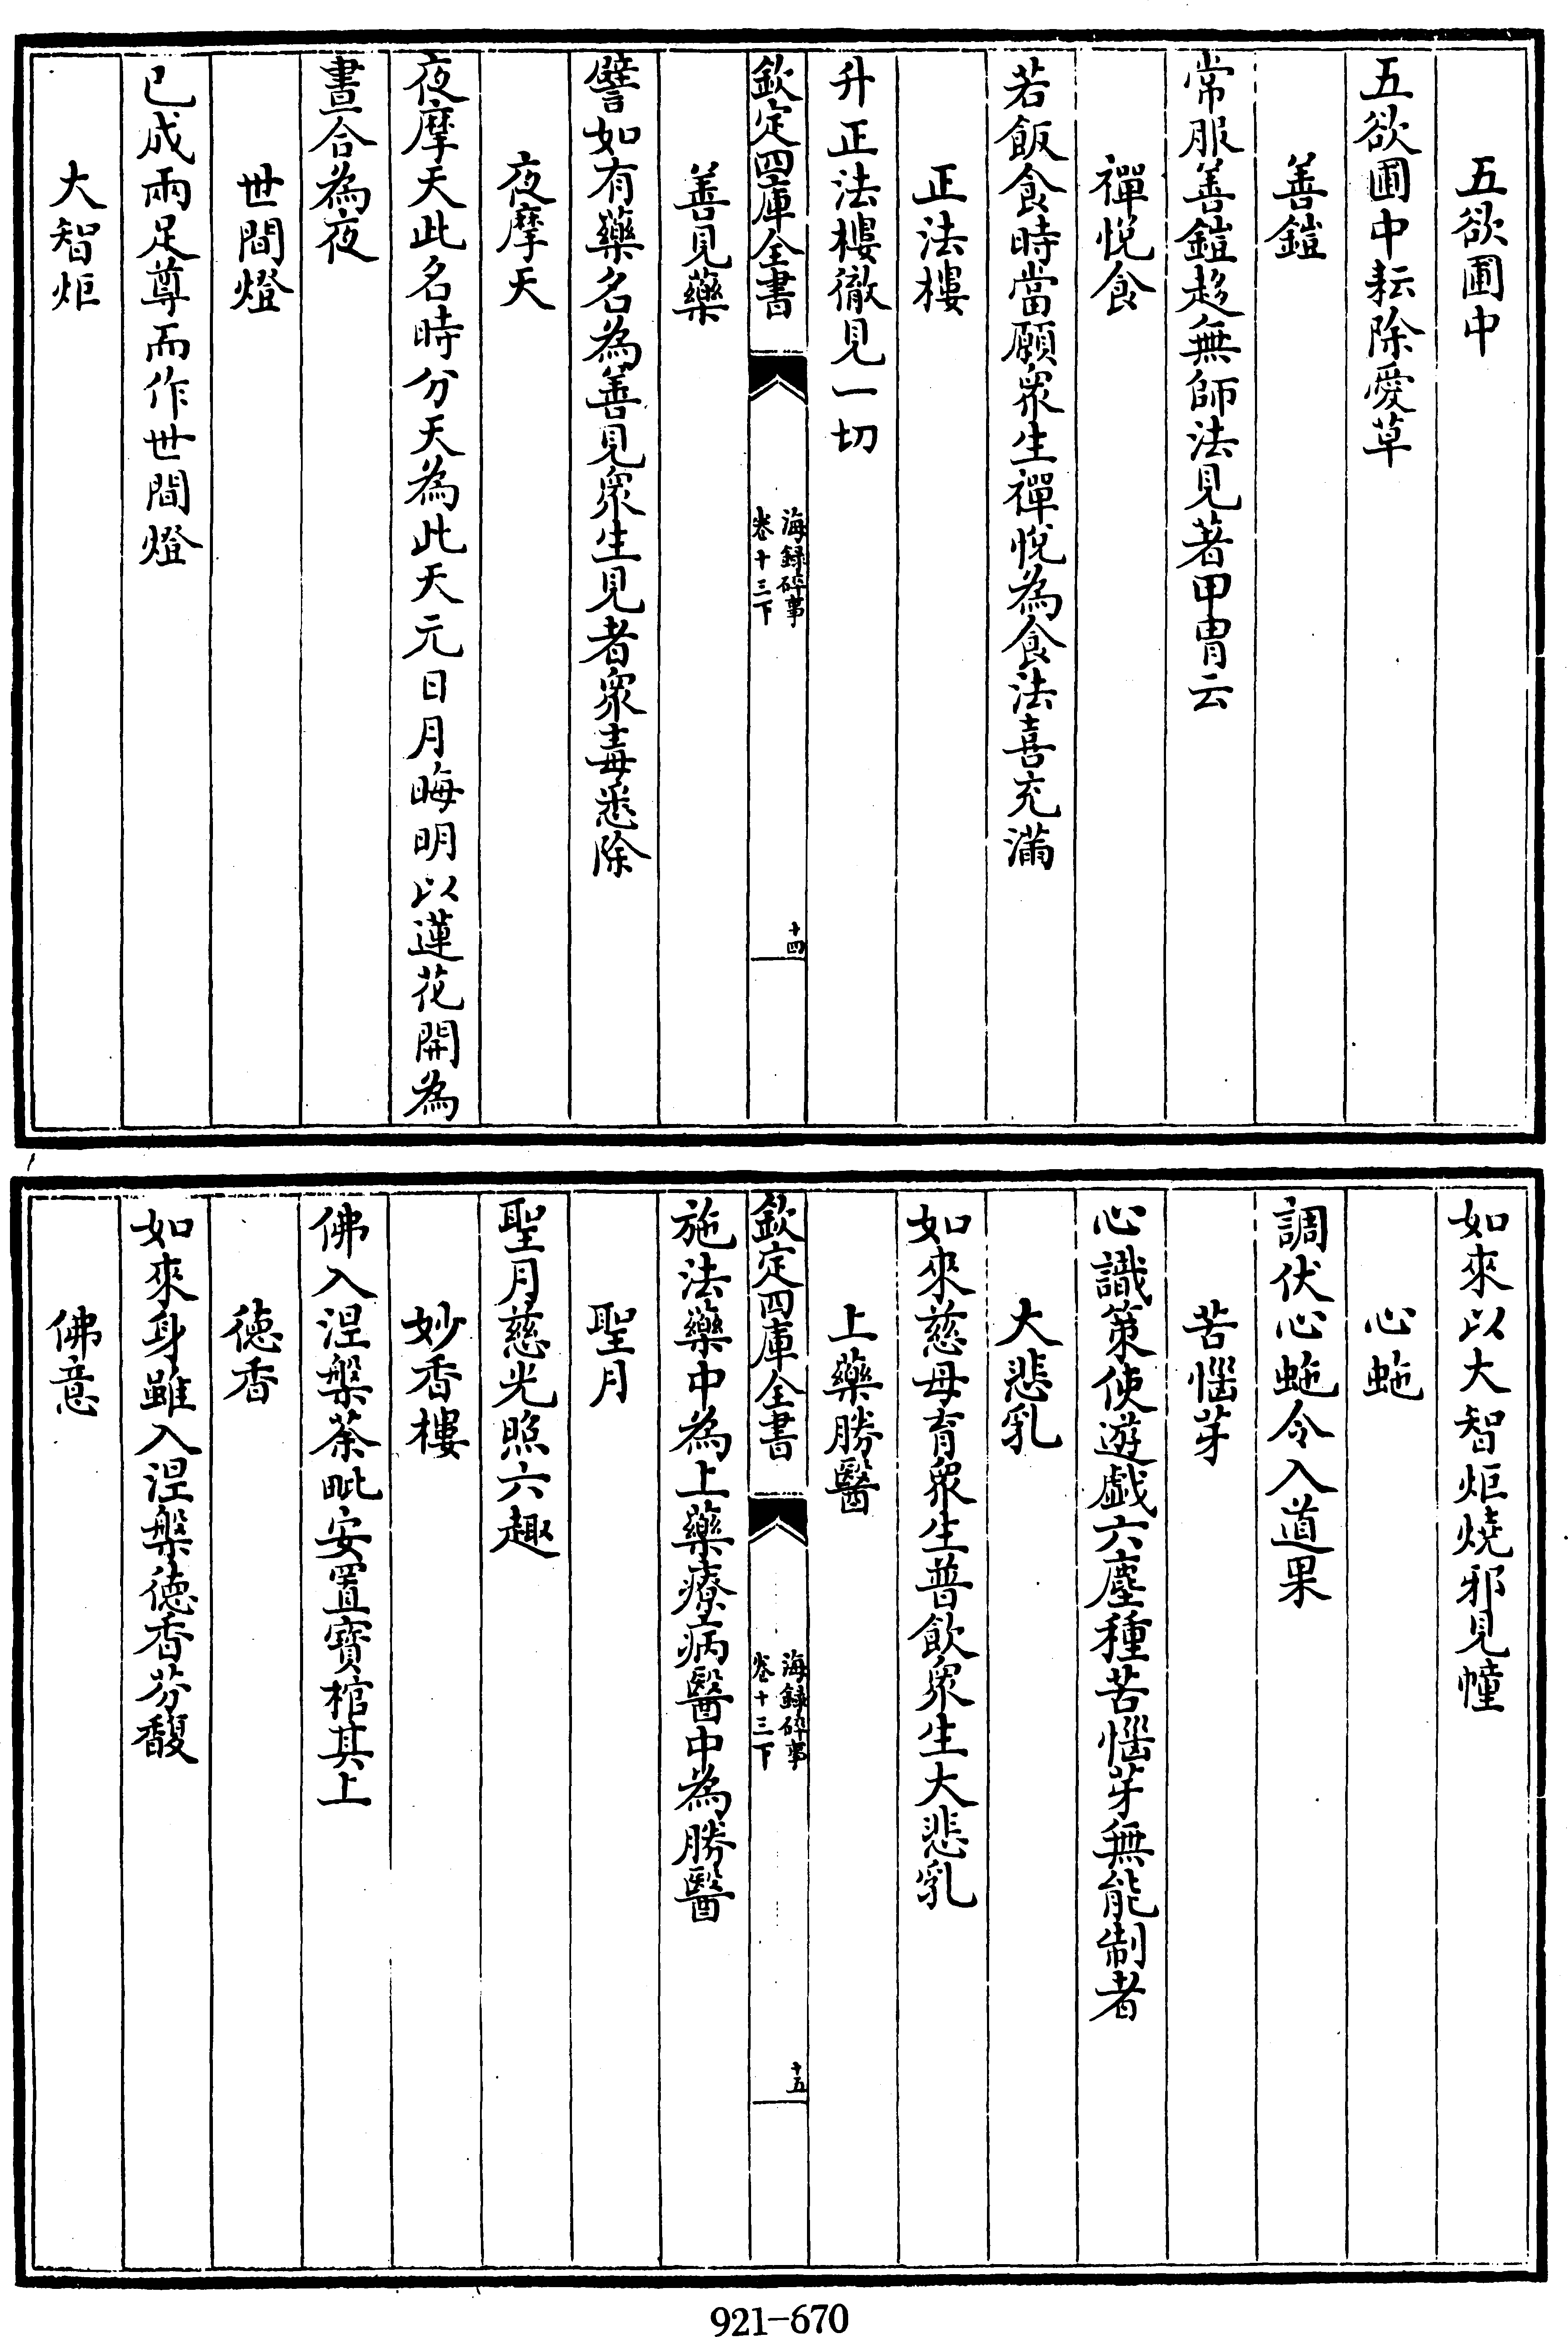 五欲圃中
五欲圃中耘除愛草
善鎧
常服善鎧趍無師法見著甲胄云
禪悅食
若飯食時當願衆生禪悅為食法喜充滿
正法樓
升正法樓徹見一切
欽定四庫全書
海録碎事
卷十三下
十四
善見藥
譬如有藥名為善見衆生見者衆毒悉除
夜摩天
夜摩天此名時分天為此天元日月晦明以蓮花開為
晝合為夜
世間燈
已成兩足尊而作世間燈
大智炬
如來以大智炬燒邪見幢
心虵
調伏心虵令入道果
苦惱芽
心識策使遊戲六塵種苦惱芽無能制者
大悲乳
如來慈母育衆生普飲衆生大悲乳
上藥勝醫
欽定四庫全書
海録碎事
卷十三下
十五
施法藥中為上藥療病醫中為勝醫
聖月
聖月慈光照六趣
妙香樓
佛入涅槃荼毗安置寶棺其上
德香
如來身雖入涅槃德香芬馥
佛意
921-670